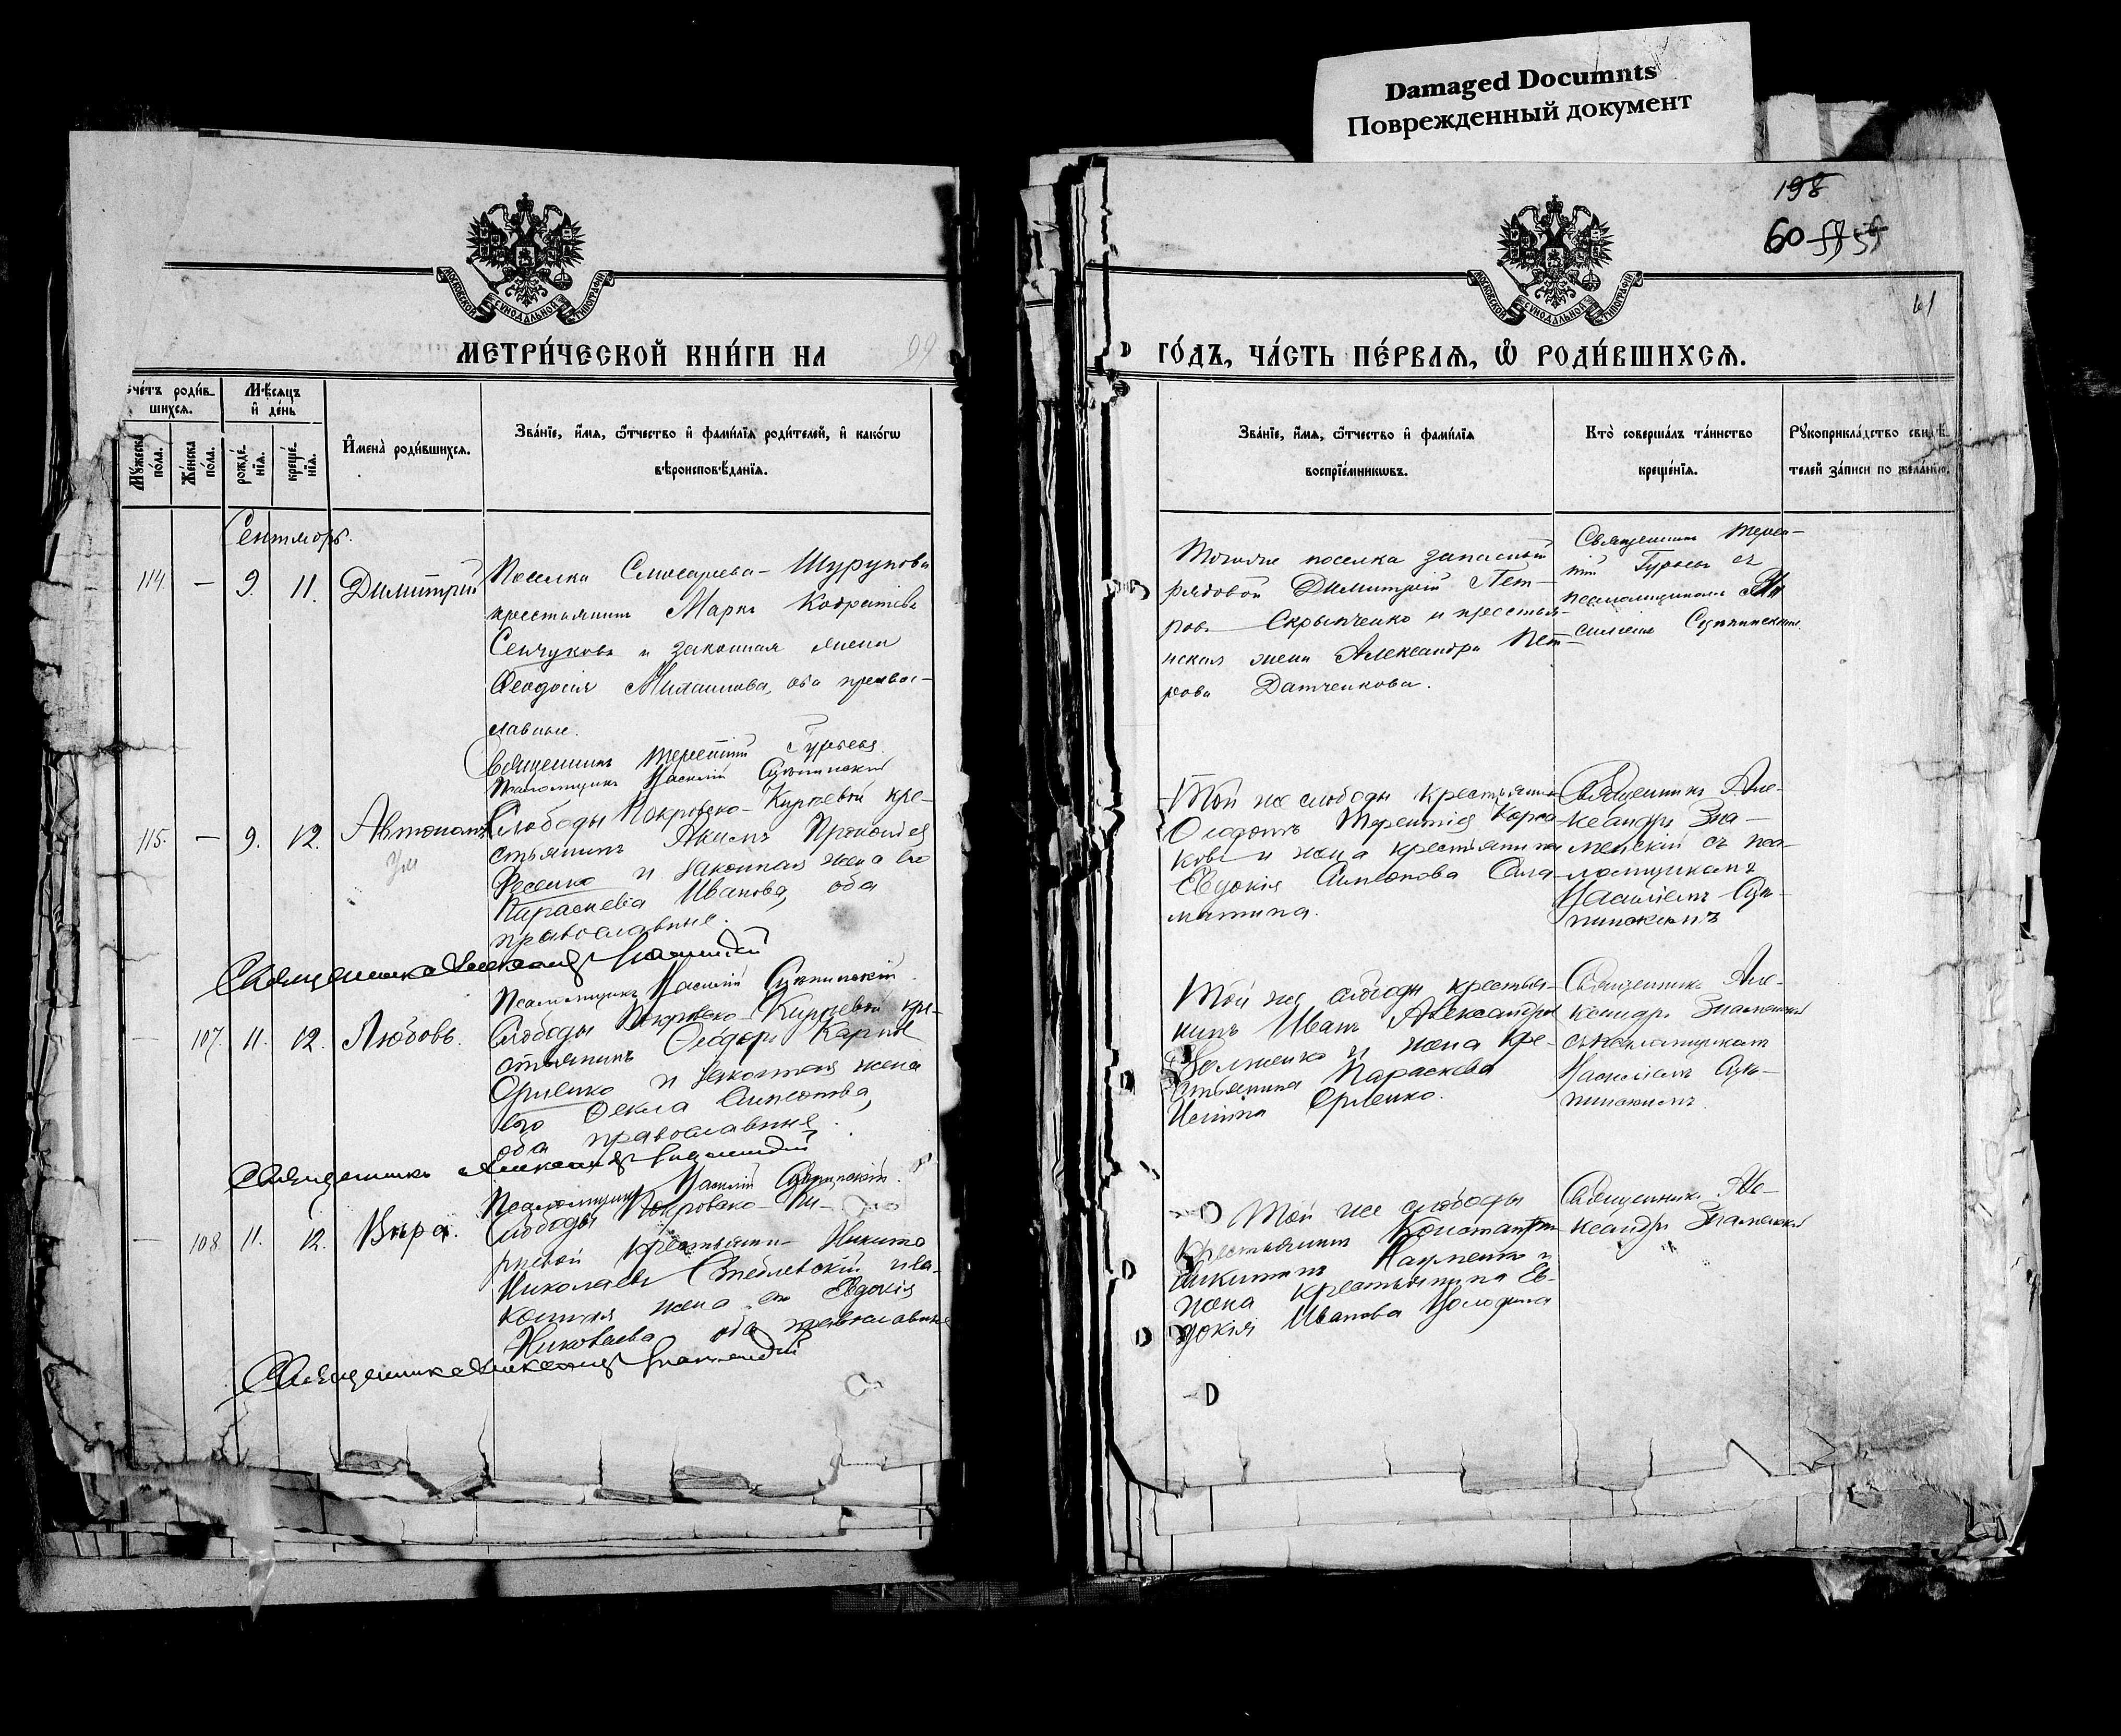 Damaged Documnts
Поврежденный документ
198
60
61
МОСКОВСКОЙ СѴНОДАЛЬНОЙ ТИПОГРАФІИ
МОСКОВСКОЙ СѴНОДАЛЬНОЙ ТИПОГРАФІИ
МЕТРИ́ЧЕСКОЙ КНИ́ГИ НА
99
ГО́ДЪ, ЧА́СТЬ ПЕ́РВАЯ, Ѡ҆ РОДИ́ВШИХСЯ.
счётъ роди́в-
шихся.
Мѣ́сяцъ
и҆ де́нь
Мꙋ́жеска по́ла.
Же́нска по́ла.
рожде́-нїя.
креще́-нїя.
И҆мена̀ роди́вшихся.
Зва́нїе, и҆́мя, ѻ҆́тчество и҆ фами́лїя роди́телей, и҆ како́гѡ
вѣроисповѣ́данїя.
Зва́нїе, и҆́мя, ѻ҆́тчество и҆ фами́лїя
воспрїе́мникѡвъ.
Кто̀ соверша́лъ та́инство
креще́нїя.
Рꙋкоприкла́дство свидѣ́-
телей за́писи по жела́нїю.
Сентябрь.
114. — 9. 11. Димитрій
Поселка Слюсарева-Шурупова
крестьянинъ Марко
Сенчуковъ и законная жена
Ѳеодосія Михаилова, оба правос-
лавные.
Священникъ Терентій Гурьевъ
Псаломщикъ Василій
Того же поселка запасный
рядовой Димитрій Пет-
ровъ Скрыпченко и крестья-
нская жена Александра Пет-
рова Датченкова.
Священникъ Терен-
тій Гурьевъ съ
псаломщикомъ Ва
силіемъ
115. — 9. 12. Автономъ
Слободы Покровско-Киреевой кре-
стьянинъ Акимъ Прокопіев
Фесенко и законная жена его
Параскева Иванова, оба
православные.
Священникъ Александръ Знаменскій
Псаломщикъ Василій
Той же слободы крестьянинъ
Ѳедотъ Терентіев Корса
ковъ и жена крестьянина
Евдокія Симеонова Сала-
матина.
Священникъ Але-
ксандръ Зна-
менскій съ пса-
ломщикомъ
Василіемъ
— 107. 11. 12. Любовь.
Слободы Покровско-Киреевой кре-
стьянинъ Ѳеодоръ Карпов
Орленко и законная жена
его Ѳекла Симеонова,
оба православные.
Священникъ Александръ Знаменскій
Псаломщикъ Василій
Той же слободы крестья-
нинъ Иванъ Александров
и жена кре-
стьянина Параскева
Орленко.
Священникъ Але-
ксандръ Знаменскій
съ псаломщикомъ
Василіемъ
— 108. 11. 12. Вѣра.
Слободы Покровско-Ки-
реевой крестьянинъ Никита
Николаевъ Стеблевскій и за-
конная жена его Евдокія
оба православные
Священникъ Александръ Знаменскій
Той же слободы
крестьянинъ Константинъ
Никитинъ Науменко и
жена крестьянина Ев-
докія Иванова
Священникъ Але-
ксандръ Знаменскій